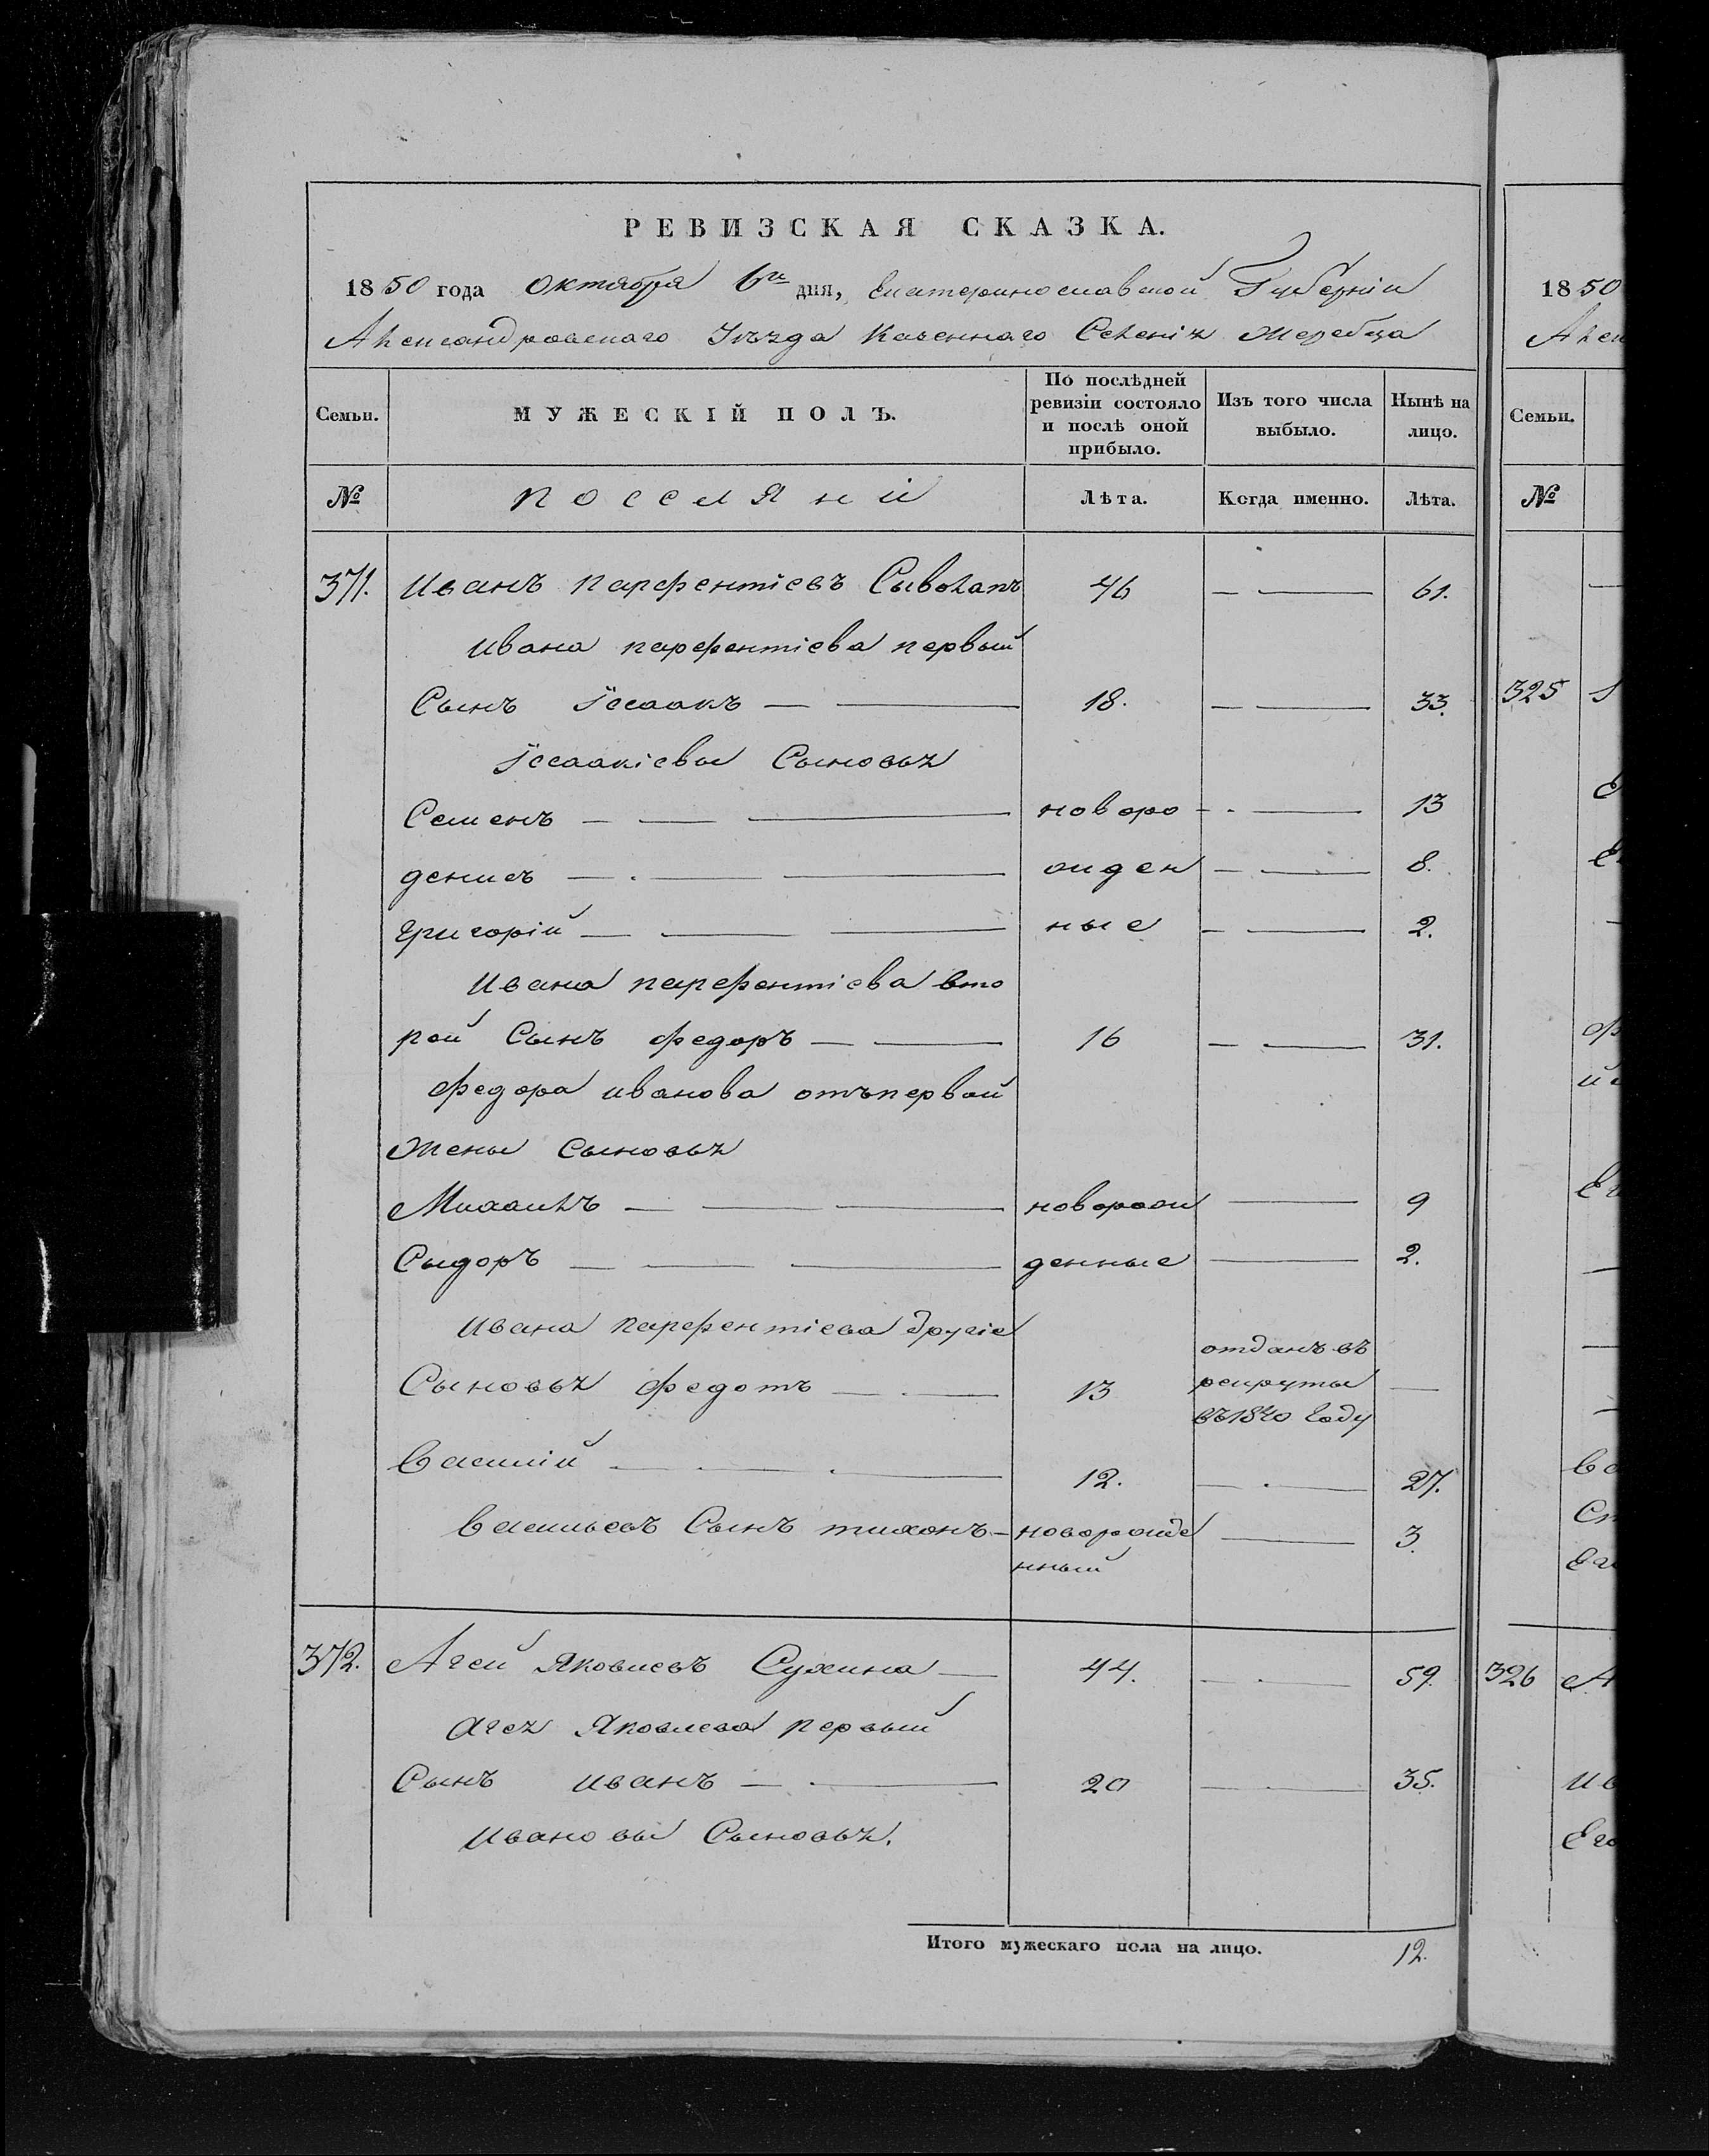 РЕВИЗСКАЯ СКАЗКА.
1850 года Октября 6го дня, Екатеринославской Губерніи
Александровскаго Уѣзда Казеннаго Селенія Жеребца
Семьи. МУЖЕСКІЙ ПОЛЪ. По послѣдней ревизіи состояло и послѣ оной прибыло. Изъ того числа выбыло. Нынѣ на лицо.
№ поселяни Лѣта. Когда именно. Лѣта.
371. Иванъ парфентіевъ Сыволапъ 46 — — 61.
Ивана парфентіева первый
Сынъ Іссаакъ — — 18. — — 33.
Іссаакіевы Сыновья
Семенъ — — — новоро — — 13
денисъ — — — жден — — 8.
григорій — — — ные — — 2.
Ивана парфентіева вто
рой Сынъ федоръ — — 16 — — 31.
федора иванова отъ первой
жены Сыновья
Михаилъ — — — оворож — 9
Сыдоръ — — — денные — 2.
Ивана парфентіева другіе
Сыновья федотъ — — 13 отданъ въ рекруты въ 1840 Году —
Василій — — — 12. — — 27.
Васильевъ Сынъ тихонъ — новорожде — 3.
нный
372. Агей Яковлевъ Сухина — 44. — — 59.
Агея Яковлева первый
Сынъ иванъ — — 20 — — 35.
Ивановы Сыновья.
Итого мужескаго пола на лицо. 12.
1850
Семьи.
№
325
326